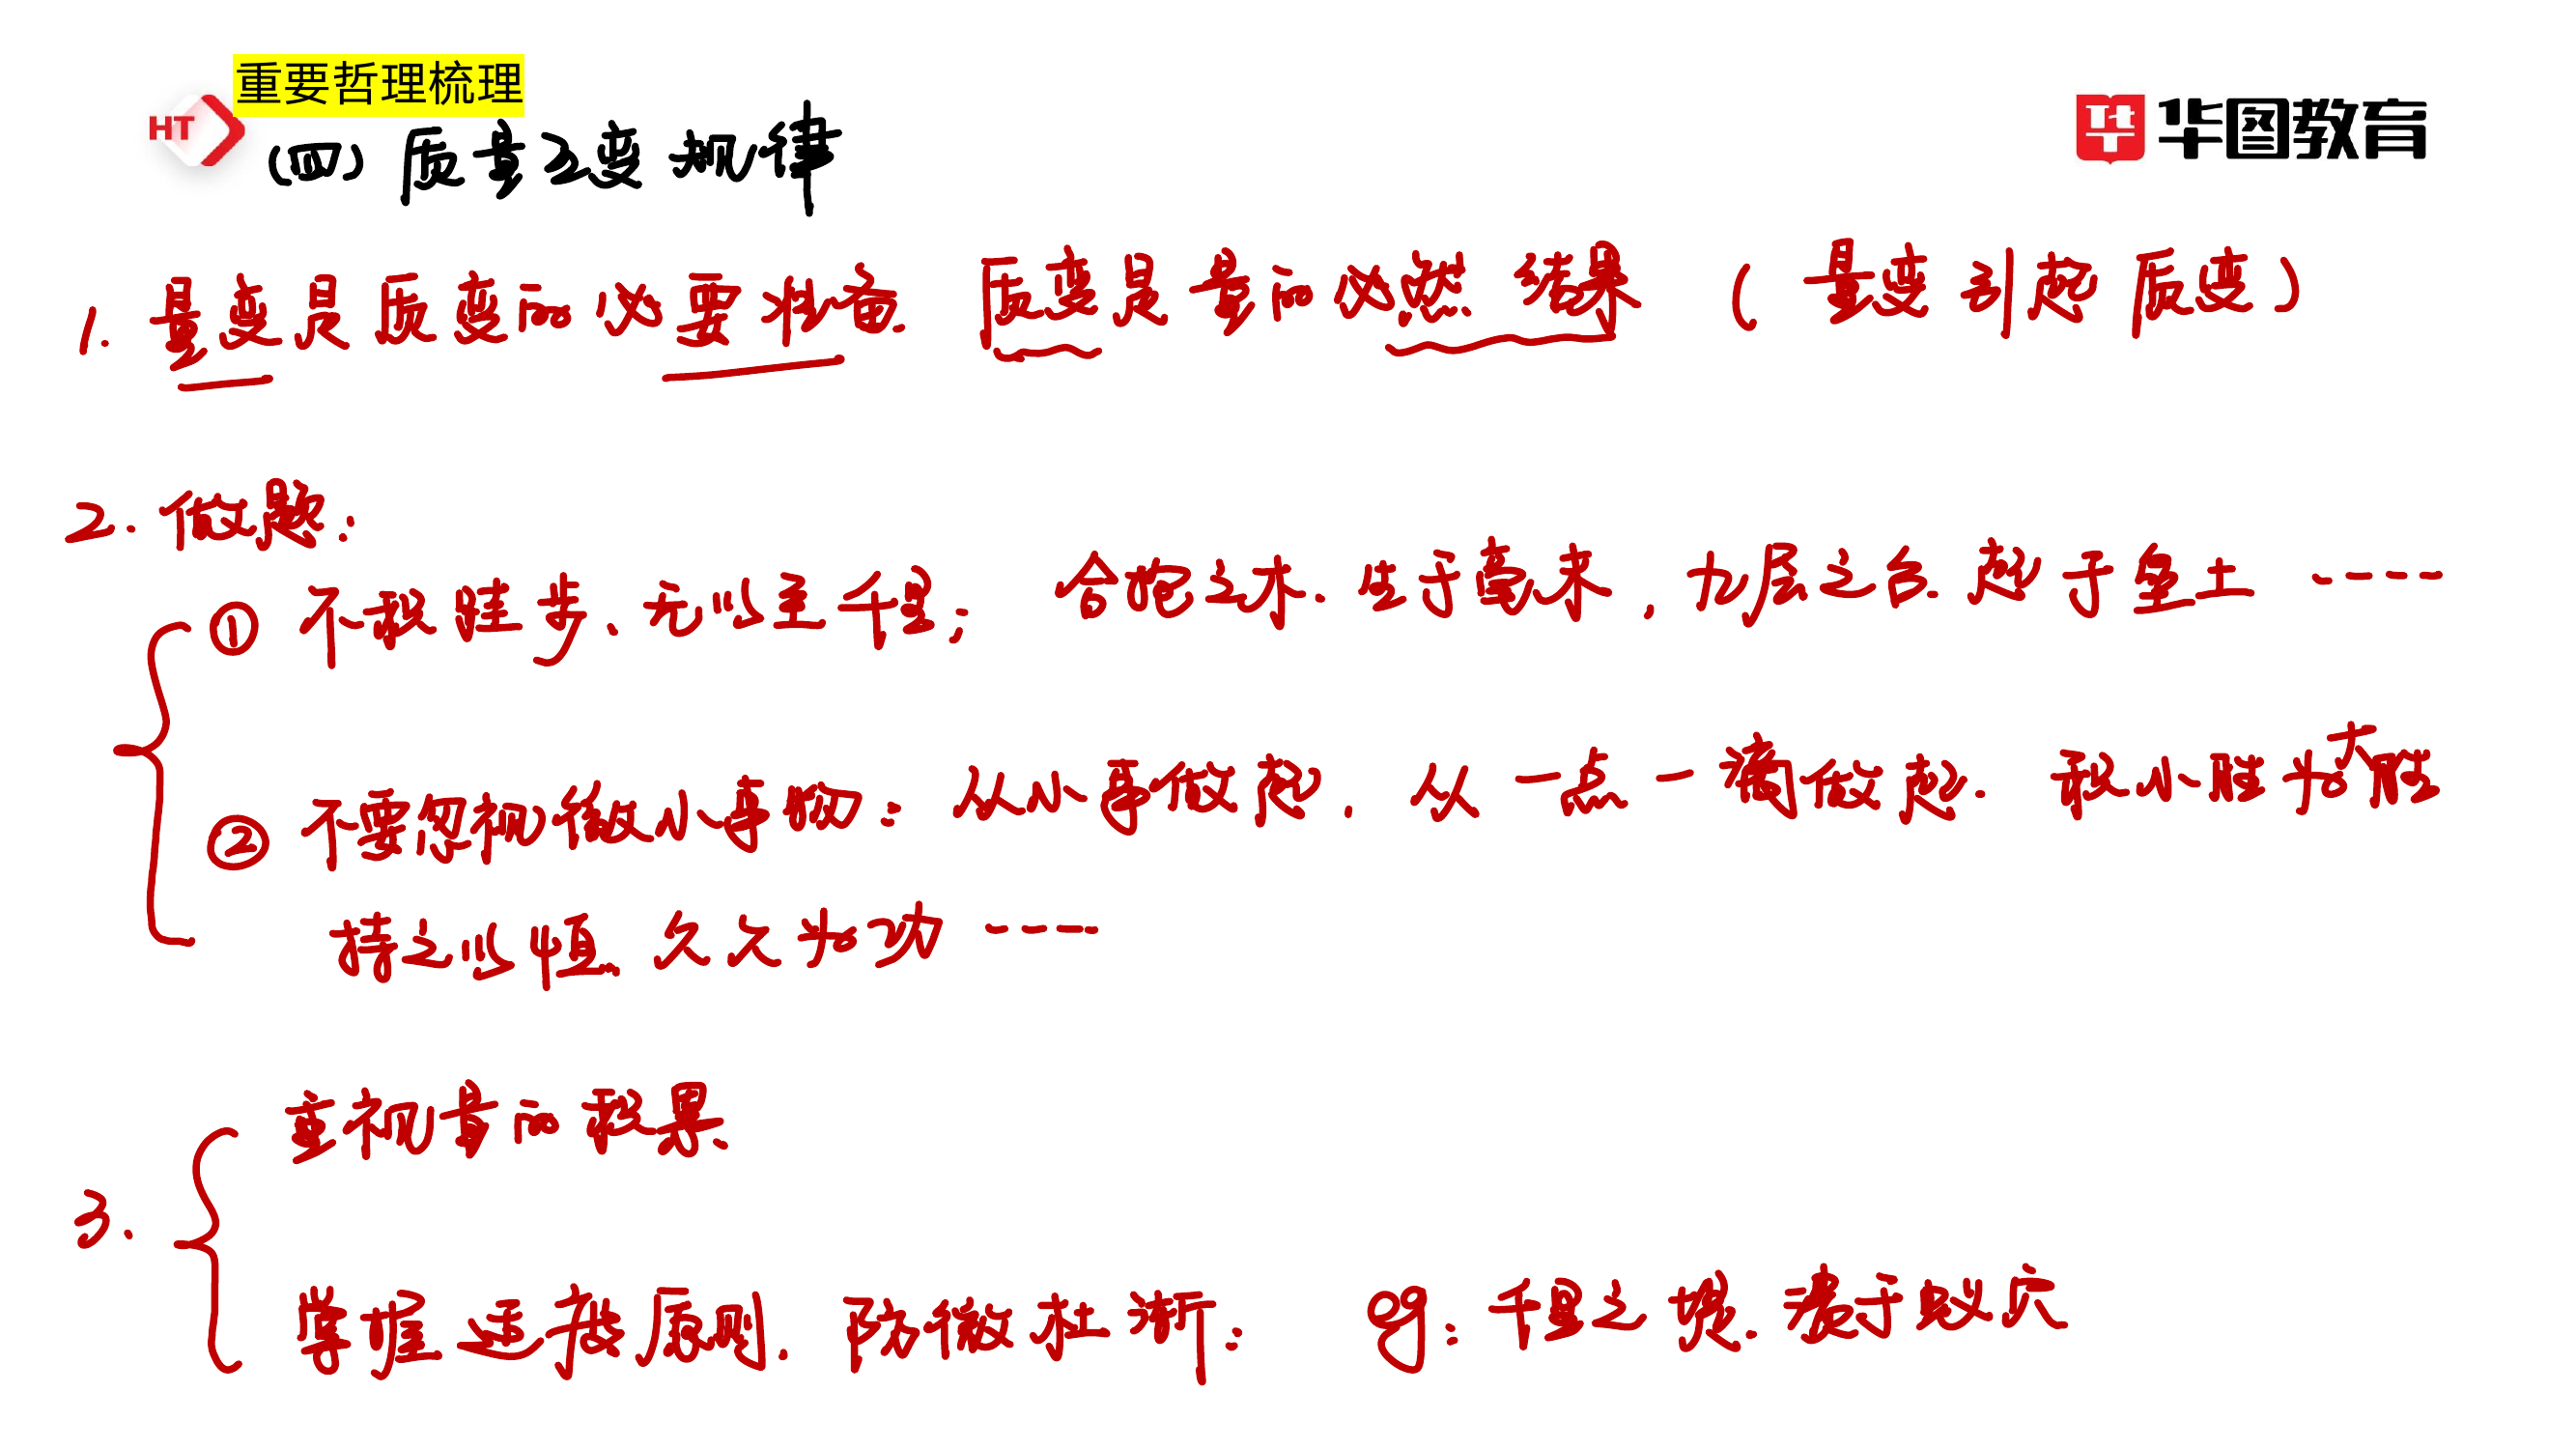 重要哲理梳理
HT
华图教育
(四) 质量互变规律
1. 量变是质变的必要准备、质变是量的必然结果 (量变引起质变)
2. 做题:
① 不积跬步、无以至千里; 合抱之木、生于毫末, 九层之台、起于垒土 ----
② 不要忽视微小事物: 从小事做起, 从一点一滴做起. 积小胜为大胜
持之以恒、久久为功 ----
3.
重视量的积累
掌握适度原则, 防微杜渐: eg: 千里之堤、溃于蚁穴